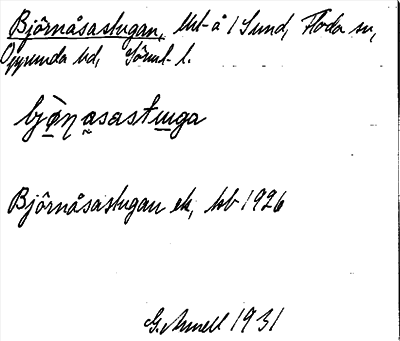 Björnåsastugan, lht å 1 Sund, Floda sn,
Oppunda hd, Sörml. l.
bjö̀ṇasastuga
Björnåsastugan ek, kb 1926
G. Arnell 1931